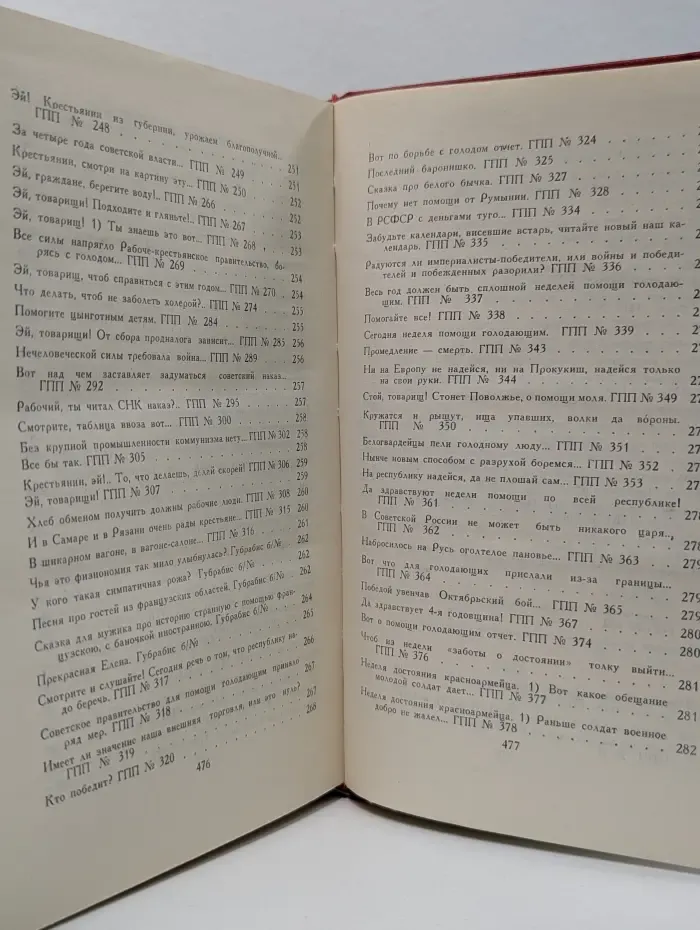 Эй! Крестьянин из губернии, урожаем благополучной..
ГПП № 248 . . . . . . . . 251
За четыре года советской власти... ГПП № 249 . . . 251
Крестьянин, смотри на картину эту... ГПП № 250 . . 252
Эй, граждане, берегите воду!.. ГПП № 266 . . . . 252
Эй, товарищи! Подходите и гляньте!.. ГПП № 267 . . 253
Эй, товарищ! 1) Ты знаешь это вот... ГПП № 268 . . 253
Все силы напрягло Рабоче-крестьянское правительство, бо-
рясь с голодом... ГПП № 269 . . . . . . 254
Эй, товарищ, чтоб справиться с этим годом... ГПП № 270 . 254
Что делать, чтоб не заболеть холерой?.. ГПП № 274 . . 255
Помогите цынготным детям. ГПП № 284 . . . . 255
Эй, товарищи! От сбора продналога зависит... ГПП № 285 256
Нечеловеческой силы требовала война... ГПП № 289 . . 256
Вот над чем заставляет задуматься советский наказ...
ГПП № 292 . . . . . . . . 257
Рабочий, ты читал СНК наказ?.. ГПП № 295 . . . . 257
Смотрите, таблица ввоза вот... ГПП № 300 . . . . 258
Без крупной промышленности коммунизма нету... ГПП № 302 258
Все бы так. ГПП № 305 . . . . . . . 258
Крестьянин, эй!.. То, что делаешь, делай скорей! ГПП № 306 259
Эй, товарищи! ГПП № 307 . . . . . . . 259
Хлеб обменом получить должны рабочие люди. ГПП № 308 260
И в Самаре и в Рязани очень рады крестьяне... ГПП № 315 260
В шикарном вагоне, в вагоне-салоне... ГПП № 316 . . 261
Чья это физиономия так мило улыбнулась? Губрабис б/№ 262
У кого такая симпатичная рожа? Губрабис б/№ . . 262
Песня про гостей из французских областей. Губрабис б/№ 262
Сказка для мужика про историю странную с помощью фран-
цузскою, с баночкой иностранною. Губрабис б/№ . 264
Прекрасная Елена. Губрабис б/№ . . . . . 265
Смотрите и слушайте! Сегодня речь о том, что республику на-
до беречь. ГПП № 317 . . . . . . . 266
Советское правительство для помощи голодающим приняло
ряд мер. ГПП № 318 . . . . . . . 267
Имеет ли значение наша внешняя торговля, или это игло?
ГПП № 319 . . . . . . . . 267
Кто победит? ГПП № 320 . . . . . . . 268
476
Вот по борьбе с голодом отчет. ГПП № 324 . . . .
Последний баронишко. ГПП № 325 . . . . . .
Сказка про белого бычка. ГПП № 327 . . . . .
Почему нет помощи от Румынии. ГПП № 328 . . . .
В РСФСР с деньгами туго... ГПП № 334 . . . . 2
Забудьте календари, висевшие встарь, читайте новый наш ка-
лендарь. ГПП № 335 . . . . . . . 2
Радуются ли империалисты-победители, или войны и победи-
телей и побежденных разорили? ГПП № 336 . . . 2
Весь год должен быть сплошной неделей помощи голодаю-
щим. ГПП № 337 . . . . . . . . 2
Помогайте все! ГПП № 338 . . . . . . . 2
Сегодня неделя помощи голодающим. ГПП № 339 . . . 27
Промедление — смерть. ГПП № 343 . . . . . . 27
Ни на Европу не надейся, ни на Прокукиш, надейся только
на свои руки. ГПП № 344 . . . . . . . 27
Стой, товарищ! Стонет Поволжье, о помощи моля. ГПП № 349 27
Кружатся и рыщут, ища упавших, волки да во́роны.
ГПП № 350 . . . . . . . . 27
Белогвардейцы пели голодному люду... ГПП № 351 . . . 27
Нынче новым способом с разрухой боремся... ГПП № 352 . 277
На республику надейся, да не плошай сам... ГПП № 353 . 277
Да здравствуют недели помощи по всей республике!
ГПП № 361 . . . . . . . . 278
В Советской России не может быть никакого царя..,
ГПП № 362 . . . . . . . . 278
Набросилось на Русь оголтелое пановье... ГПП № 363 . . 279
Вот что для голодающих прислали из-за границы...
ГПП № 364 . . . . . . . . 279
Победой увенчав Октябрьский бой... ГПП № 365 . . . 279
Да здравствует 4-я годовщина! ГПП № 367 . . . . 280
Вот о помощи голодающим отчет. ГПП № 374 . . . . 280
Чтоб из недели «заботы о достоянии» толку выйти...
ГПП № 376 . . . . . . . . 281
Неделя достояния красноармейца. 1) Вот какое обещание
молодой солдат дает... ГПП № 377 . . . . . 281
Неделя достояния красноармейца. 1) Раньше солдат военное
добро не жалел... ГПП № 378 . . . . . . 282
477